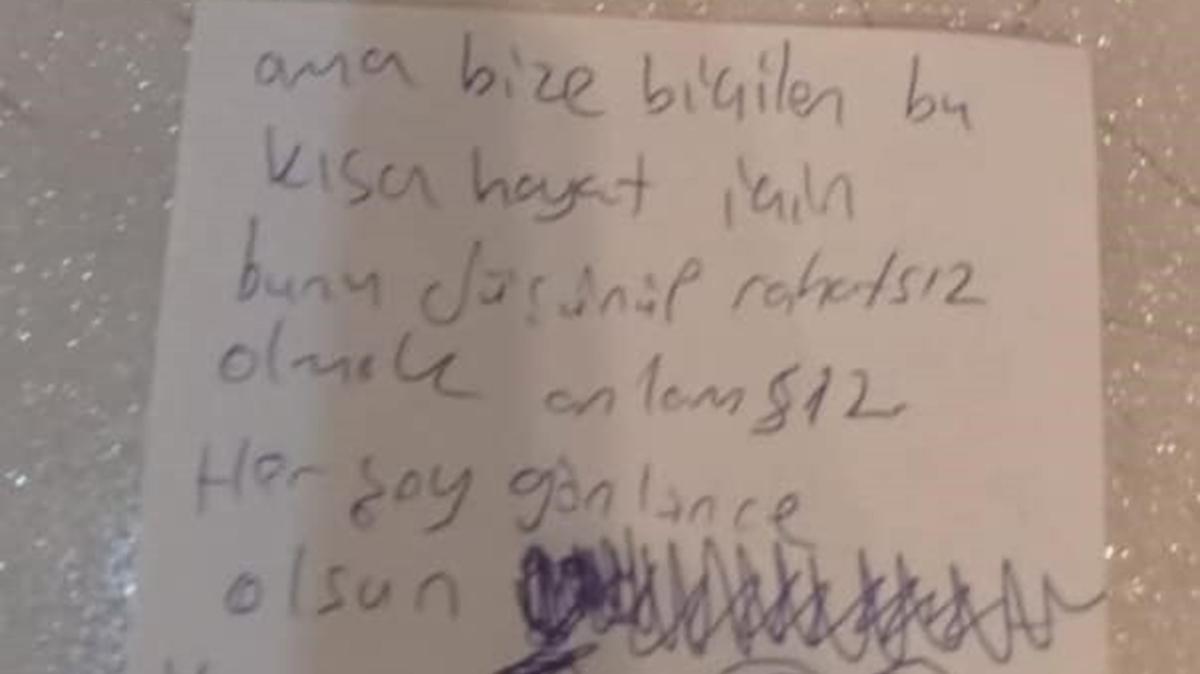 ama bize biçilen bu
kısa hayat için
bunu düşünüp rahatsız
olmak anlamsız
Her şey gönlünce
olsun